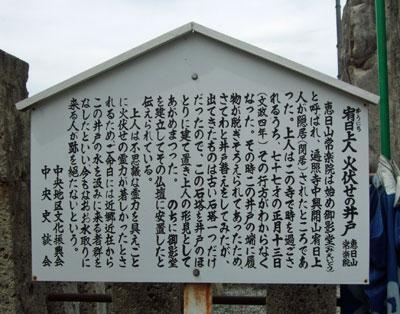 ゆうにち
宥日上人 火伏せの井戸
恵日山
常楽院
恵日山常楽院は始め御影堂(みえいどう)
と呼ばれ、遍照寺中興開山宥日上
人が隠居(閑居)されたところであ
った。上人はこの寺で時を過ごさ
れるうち、七十七才の正月十三日
(文政四年)その行方がわからなく
なった。その時この井戸の端に履
物が脱ぎそろえられてあったため、
さてわれと井戸替えをしてみたが、
出てきたのは古い石塔一つだけ
だったので、この石塔を井戸のほ
とりに建て置き上人の形見として
あがめまつった。のちに御影堂
を建立してその仏壇に安置したと
伝えられている。
上人は不思議な霊力を具えこと
に火伏せの霊力が著しかったとさ
れるためご今日には近郷近在から
この井戸の水を汲みに来る者群を
なしたといい今もなおお水取りに
来る人が跡を絶たないという。
中央地区文化振興会
中央史談会